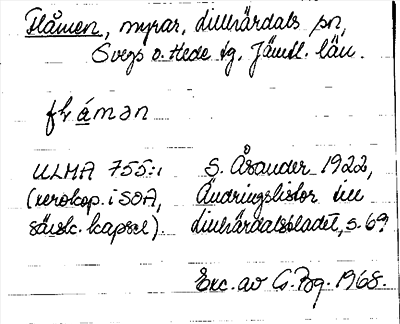 Flåmen, myrar, Linhärdals sn,
Svegs o. Hede tg, Jämtl. län.
flåmən
ULMA 755:1 S. Åsander 1922,
(xerokop. i SOA, Ändringslistor till
särsk. kapsel). Linhärdalsbladet, s. 69
Exc. av G. Bg. 1968.